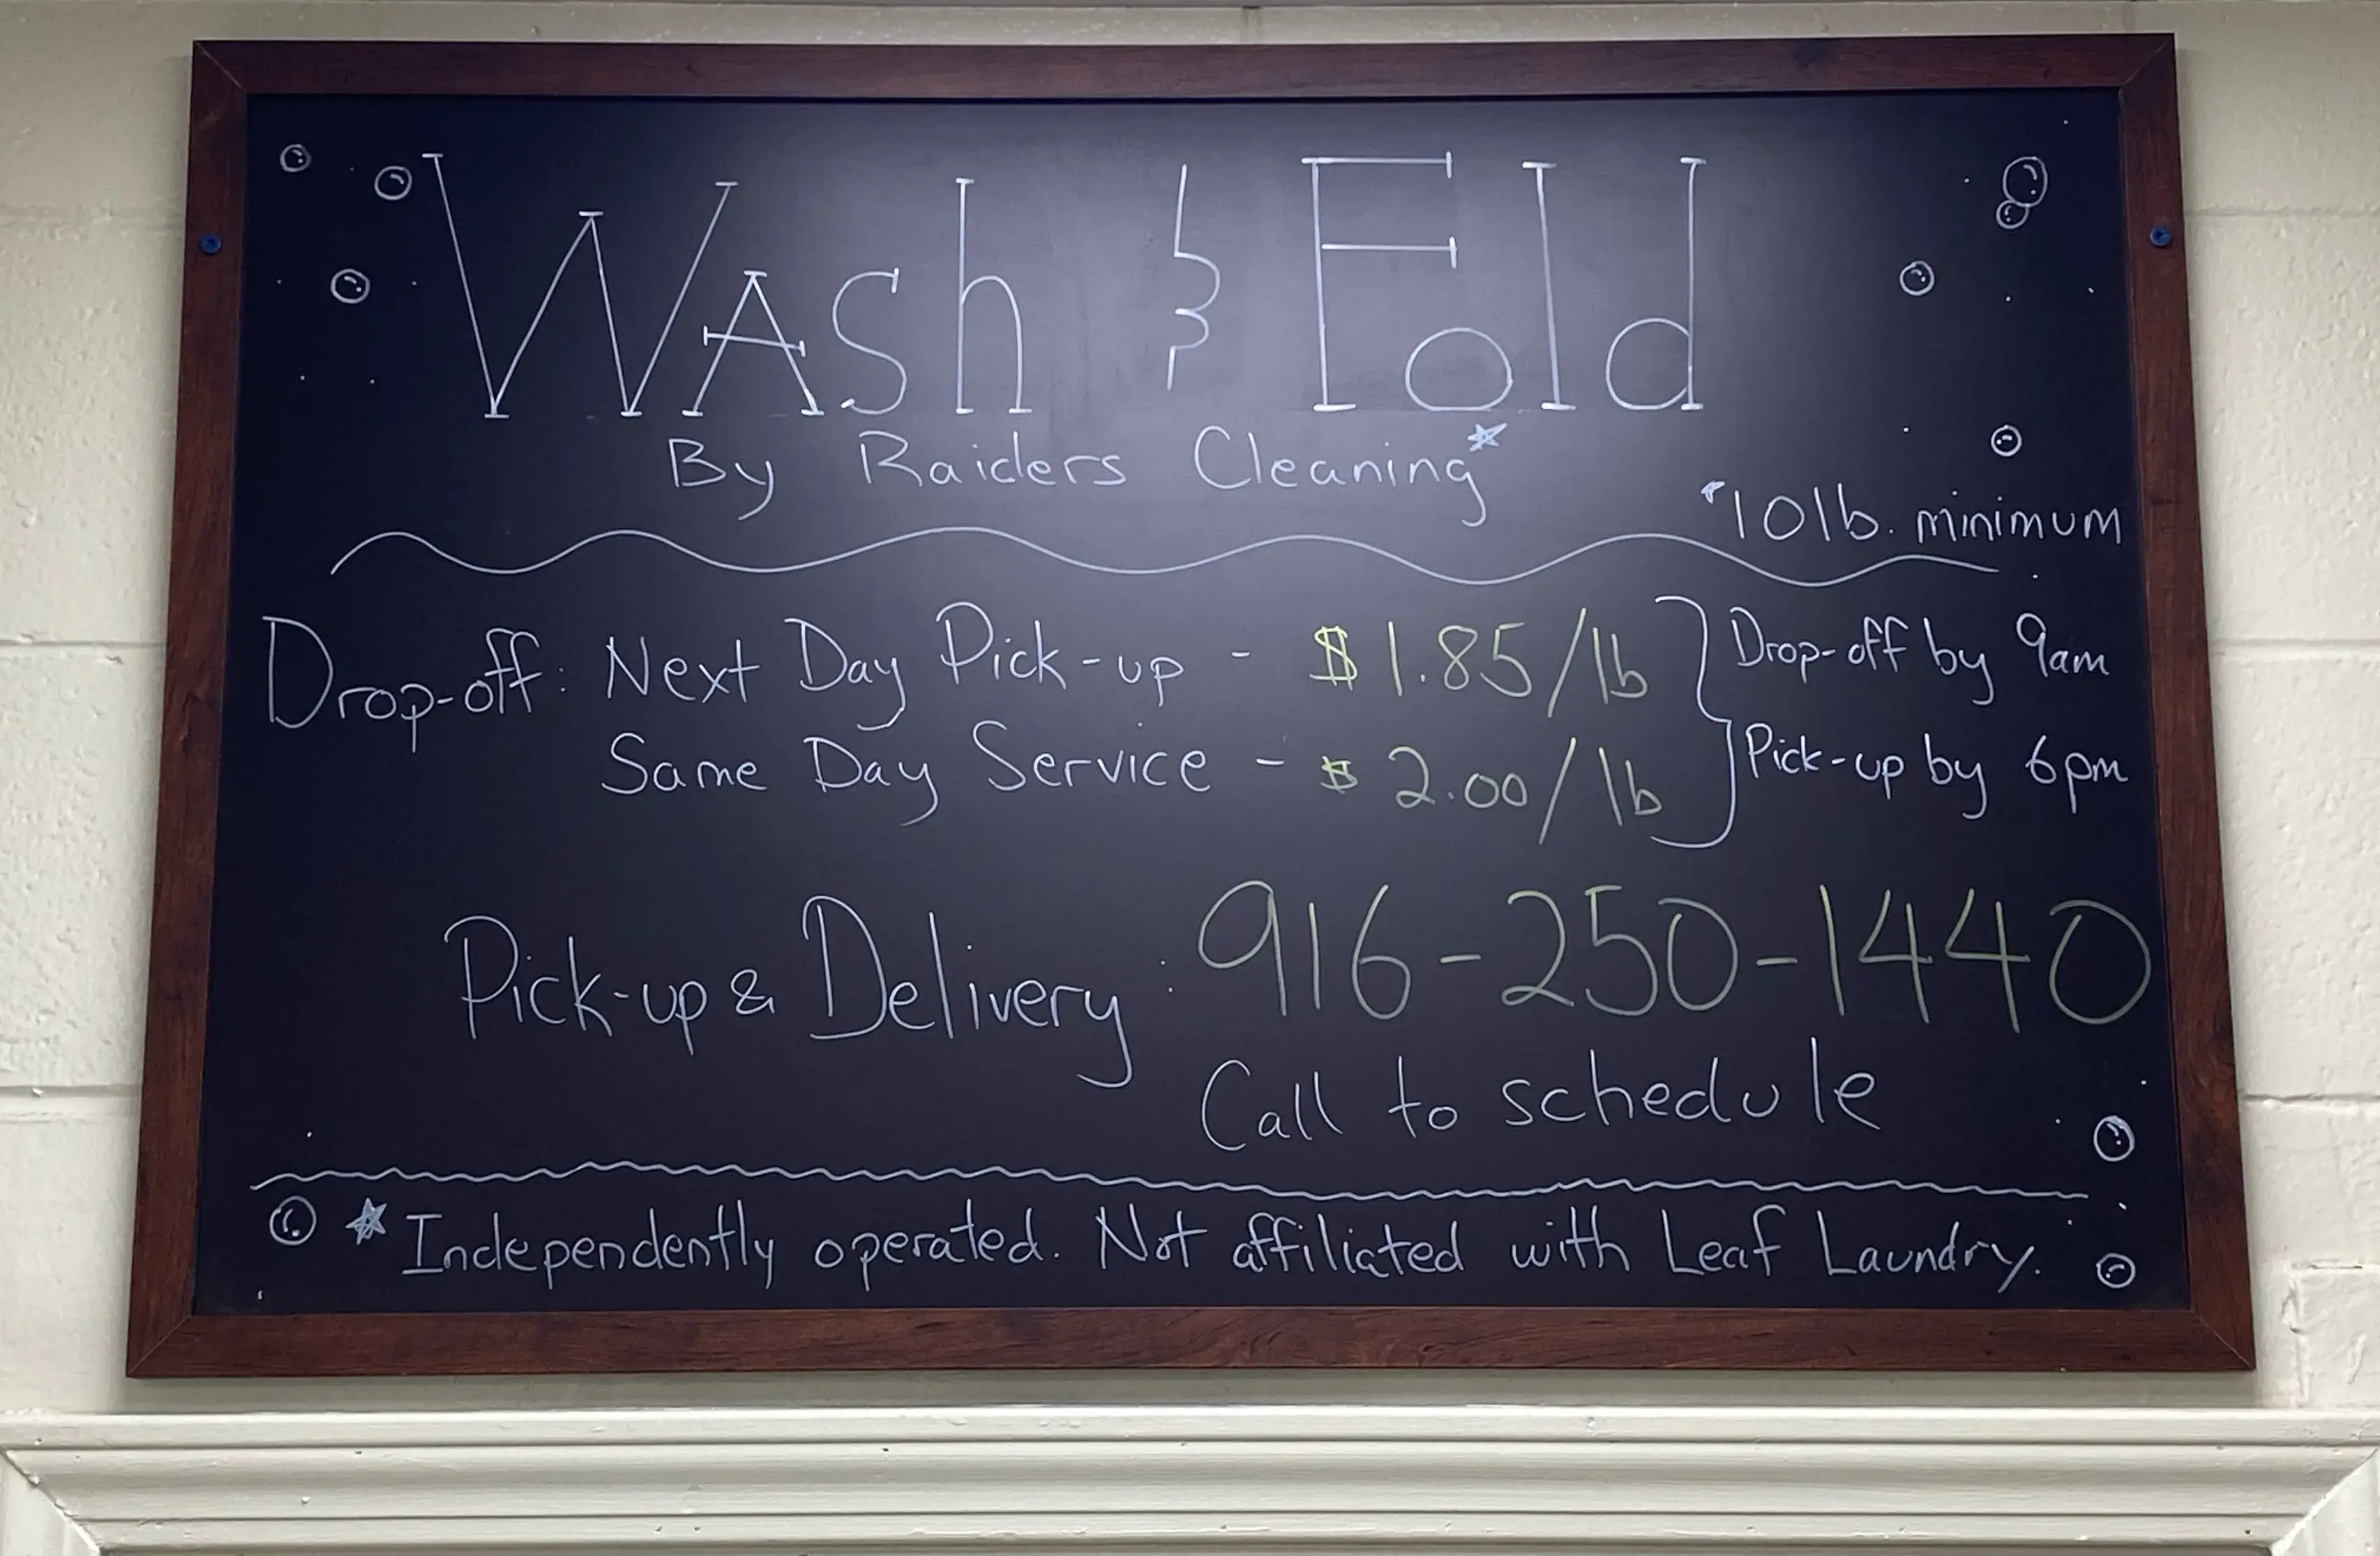 Wash & Fold
By Raiders Cleaning*
*10 lb. minimum
Drop-off: Next Day Pick-up - $1.85/lb } Drop-off by 9am
Same Day Service - $2.00/lb } Pick-up by 6pm
Pick-up & Delivery: 916-250-1440
Call to schedule
* Independently operated. Not affiliated with Leaf Laundry.